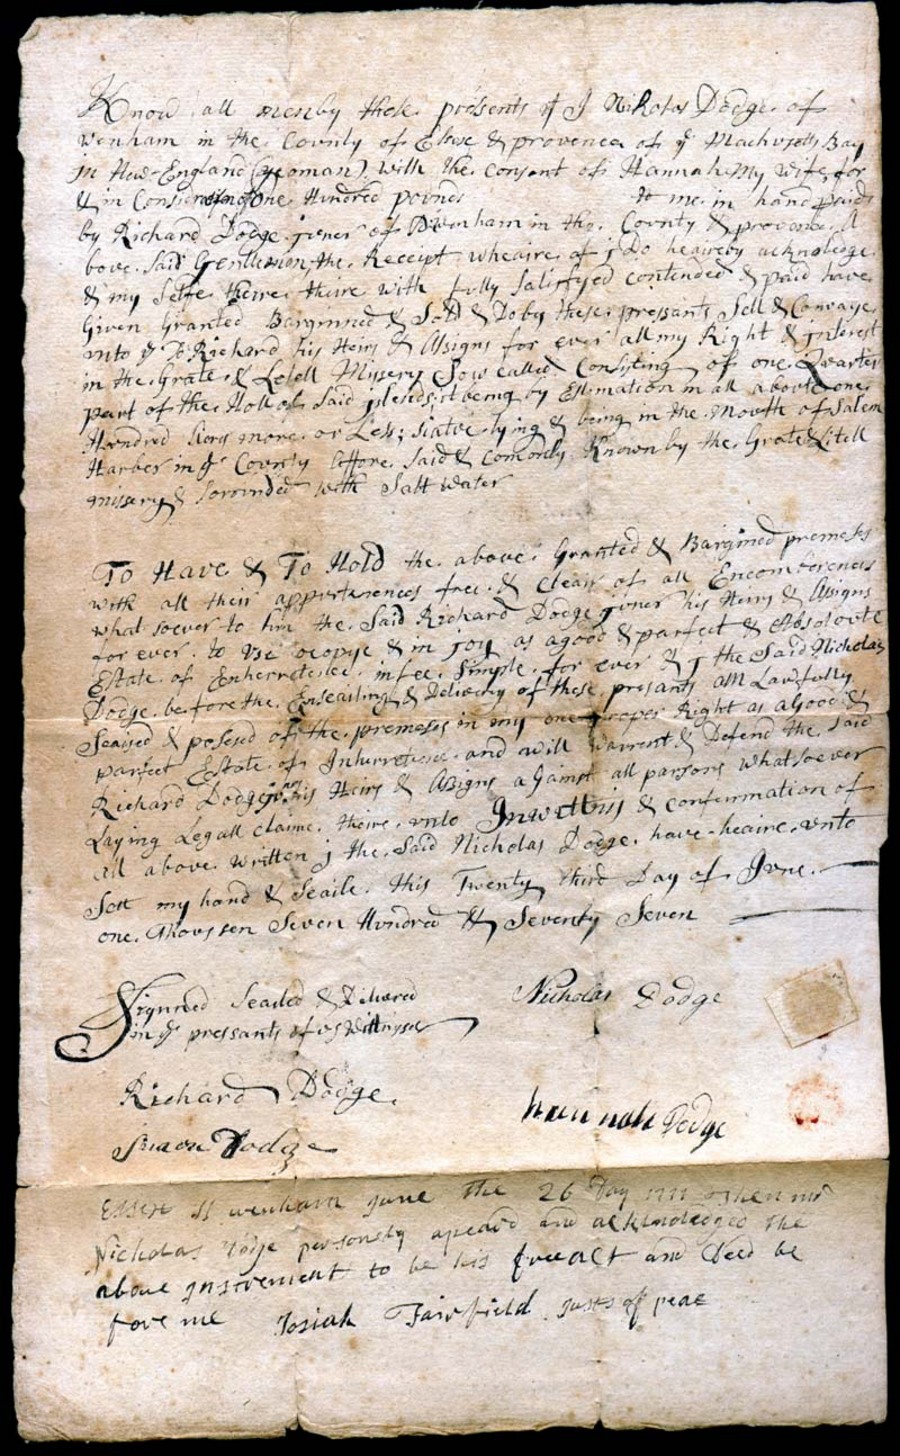 Know all menby these presents yt I Nikolas Dodge of
Wenham in the County of Esex & provence of ye Machusetts Bay
in New England (yeoman) with the consent of Hannah My wife, for
& in Consideration of one Hundred pounds to me in hand paide
by Richard Dodge juner of Wenham in the County & provence A
bove Said Gentleman, the Receipt wheaire of j Do heaireby acknoledge
& my Selfe theire theire with fully Satisfyed contended & paid have
Given Granted Barginned & Sold & Do by these pressants Sell & Convaye
unto ye Sd Richard his Heirs & Assigns for ever all my Right & jnterest
in the Grate & Letell Missery Sow called Consisting of one Quarter
part of the Holl of Said jslends, it being by Esstimation in all aboute one
Hundred Acors more or Less; siatue lying & being in the Mouth of Salem
Harber in ye County beffore Said & comonly Known by the Grate & Litell
missery & sorounded with Salt water
To Have & To Hold the above Granted & Bargined premeses
with all their appurtenences free & clear of all Encomberences
what soever to him the Said Richard Dodge juner his Heirs & Assigns
for ever to Use ocopye & in joy as agood & parfect & Absoloute
Estate of Enherretence in fee Simple for ever & j the Said Nicholas
Dodge before the Ensealing & Delivery of these presants am Lawfully
Seaised & posesed of the premeses in my one proper Right as a Good &
parfect Estate of Inherretence and will Warrent & Defend the Said
Richard Dodge junr his Heirs & Assigns against all parsons whatsoever
Laying Legall claime theire unto Inwittnis & confirmation of
all above written j the Said Nicholas Dodge have heaire unto
Sett my hand & Seaile this Twenty third Day of June
one Thoussen Seven Hundred & Seventy Seven
Signned Sealed & Delivered
in ye pressants of us Wittnysses
Nicholas Dodge
Richard Dodge
Hannah Dodge
Simon Dodge
Essex ss wenham June the 26 Day 1777 then mr
Nicholas Dodge personely apeard and acknowledged the
above instrement to be his free act and Deed be
fore me Josiah Fairfield Justs of peace